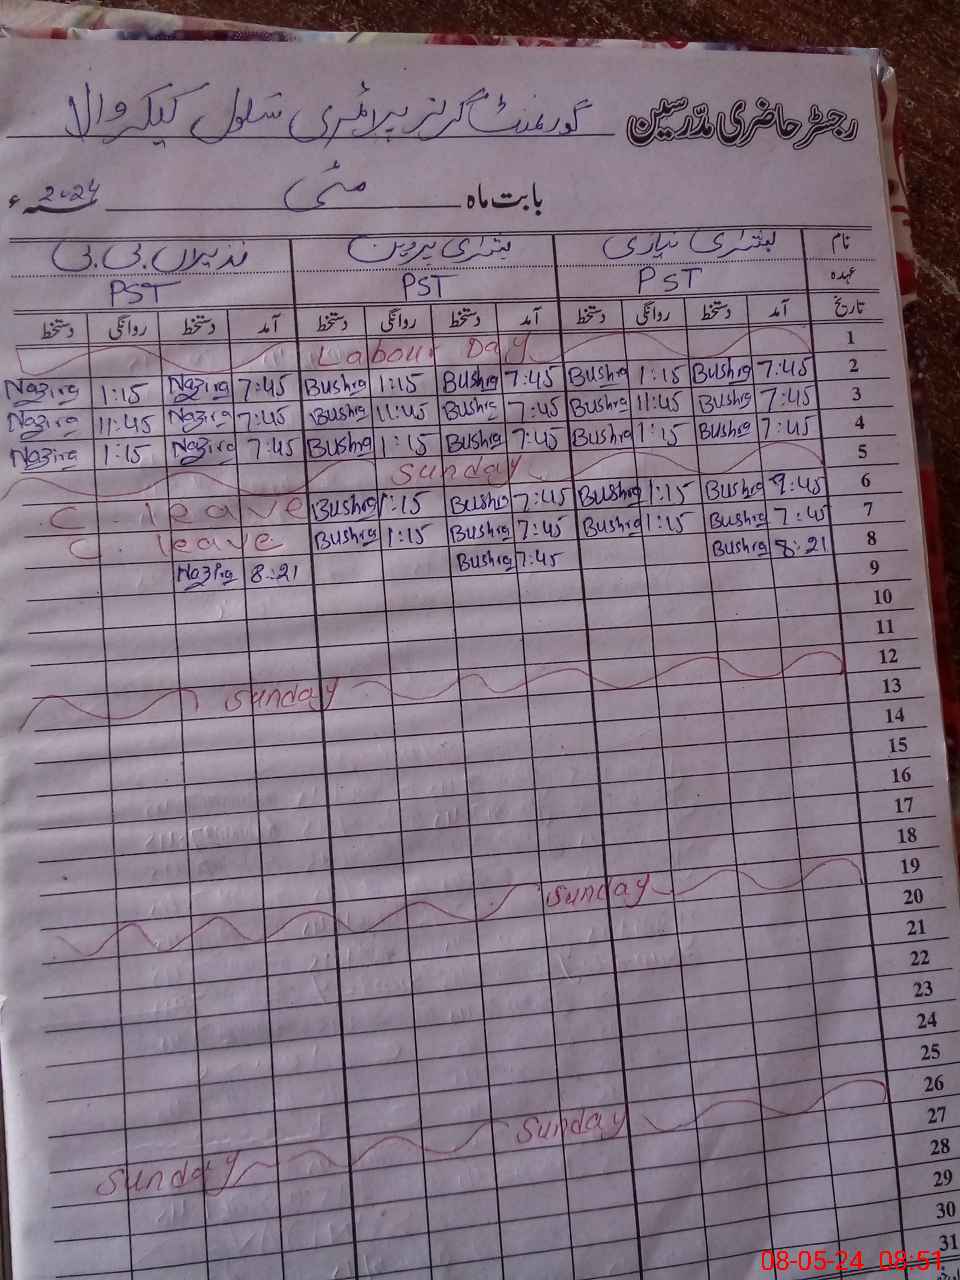 رجسٹر حاضری مدرسین گورنمنٹ گرلز پرائمری سکول کیکر والا
بابت ماہ مئی 2024ء
نام بشریٰ نیازی بشریٰ پروین نذیراں بی بی
عہدہ PST PST PST
تاریخ آمد دستخط روانگی دستخط آمد دستخط روانگی دستخط آمد دستخط روانگی دستخط
1 Labour Day
2 7:45 Bushra 1:15 Bushra 7:45 Bushra 1:15 Bushra 7:45 Nazira 1:15 Nazira
3 7:45 Bushra 11:45 Bushra 7:45 Bushra 11:45 Bushra 7:45 Nazira 11:45 Nazira
4 7:45 Bushra 1:15 Bushra 7:45 Bushra 1:15 Bushra 7:45 Nazira 1:15 Nazira
5 Sunday
6 9:45 Bushra 1:15 Bushra 7:45 Bushra 1:15 Bushra C. leave
7 7:45 Bushra 1:15 Bushra 7:45 Bushra 1:15 Bushra C. leave
8 8:21 Bushra 7:45 Bushra 8:21 Nazira
9
10
11
12 Sunday
13
14
15
16
17
18
19 Sunday
20
21
22
23
24
25
26 Sunday
27
28 Sunday
29
30
31
08-05-24 08:51